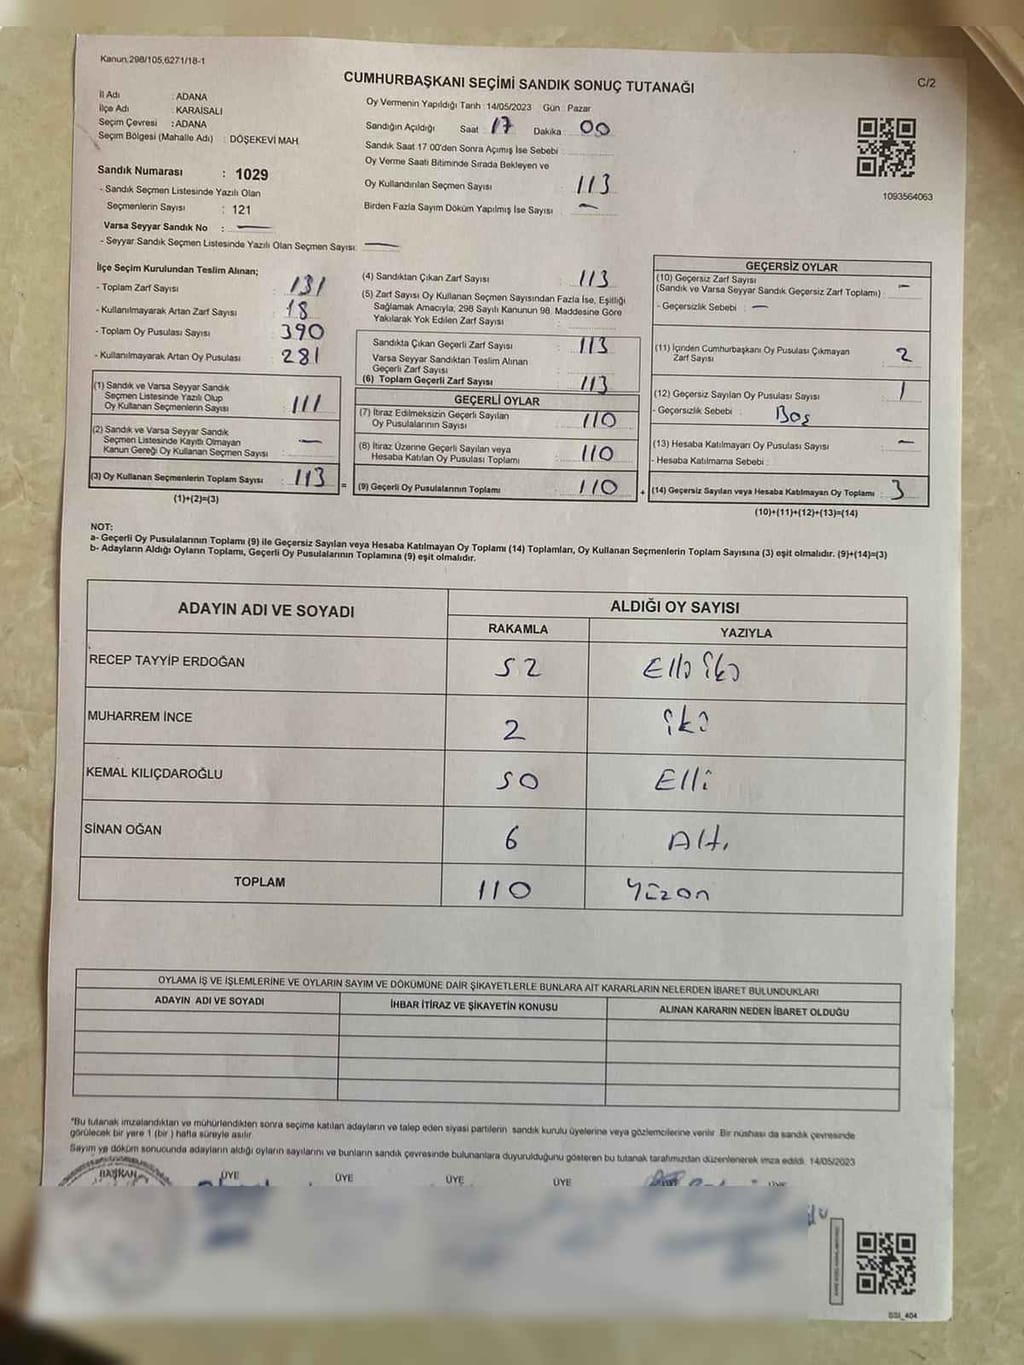 Kanun,298/105,6271/18-1
CUMHURBAŞKANI SEÇİMİ SANDIK SONUÇ TUTANAĞI
C/2
İl Adı : ADANA
İlçe Adı : KARAİSALI
Seçim Çevresi : ADANA
Seçim Bölgesi (Mahalle Adı) : DÖŞEKEVİ MAH
Sandık Numarası : 1029
- Sandık Seçmen Listesinde Yazılı Olan
Seçmenlerin Sayısı : 121
Varsa Seyyar Sandık No : —
- Seyyar Sandık Seçmen Listesinde Yazılı Olan Seçmen Sayısı: —
Oy Vermenin Yapıldığı Tarih :14/05/2023 Gün : Pazar
Sandığın Açıldığı Saat 17 Dakika 00
Sandık Saat 17:00'den Sonra Açımış İse Sebebi :
Oy Verme Saati Bitiminde Sırada Bekleyen ve
Oy Kullandırılan Seçmen Sayısı : 113
Birden Fazla Sayım Döküm Yapılmış İse Sayısı : —
1093564063
İlçe Seçim Kurulundan Teslim Alınan;
- Toplam Zarf Sayısı : 131
- Kullanılmayarak Artan Zarf Sayısı : 18
- Toplam Oy Pusulası Sayısı : 390
- Kullanılmayarak Artan Oy Pusulası : 281
(1) Sandık ve Varsa Seyyar Sandık
Seçmen Listesinde Yazılı Olup
Oy Kullanan Seçmenlerin Sayısı : 111
(2) Sandık ve Varsa Seyyar Sandık
Seçmen Listesinde Kayıtlı Olmayan
Kanun Gereği Oy Kullanan Seçmen Sayısı : —
(3) Oy Kullanan Seçmenlerin Toplam Sayısı : 113
(1)+(2)=(3)
(4) Sandıktan Çıkan Zarf Sayısı : 113
(5) Zarf Sayısı Oy Kullanan Seçmen Sayısından Fazla İse, Eşitliği
Sağlamak Amacıyla; 298 Sayılı Kanunun 98. Maddesine Göre
Yakılarak Yok Edilen Zarf Sayısı :
Sandıkta Çıkan Geçerli Zarf Sayısı : 113
Varsa Seyyar Sandıktan Teslim Alınan
Geçerli Zarf Sayısı :
(6) Toplam Geçerli Zarf Sayısı : 113
GEÇERLİ OYLAR
(7) İtiraz Edilmeksizin Geçerli Sayılan
Oy Pusulalarının Sayısı : 110
(8) İtiraz Üzerine Geçerli Sayılan veya
Hesaba Katılan Oy Pusulası Toplamı : 110
= (9) Geçerli Oy Pusulalarının Toplamı : 110 +
GEÇERSİZ OYLAR
(10) Geçersiz Zarf Sayısı
(Sandık ve Varsa Seyyar Sandık Geçersiz Zarf Toplamı) : —
- Geçersizlik Sebebi : —
(11) İçinden Cumhurbaşkanı Oy Pusulası Çıkmayan
Zarf Sayısı : 2
(12) Geçersiz Sayılan Oy Pusulası Sayısı : 1
- Geçersizlik Sebebi : Boş
(13) Hesaba Katılmayan Oy Pusulası Sayısı : —
- Hesaba Katılmama Sebebi :
(14) Geçersiz Sayılan veya Hesaba Katılmayan Oy Toplamı : 3
(10)+(11)+(12)+(13)=(14)
NOT:
a- Geçerli Oy Pusulalarının Toplamı (9) ile Geçersiz Sayılan veya Hesaba Katılmayan Oy Toplamı (14) Toplamları, Oy Kullanan Seçmenlerin Toplam Sayısına (3) eşit olmalıdır. (9)+(14)=(3)
b- Adayların Aldığı Oyların Toplamı, Geçerli Oy Pusulalarının Toplamına (9) eşit olmalıdır.
ADAYIN ADI VE SOYADI
ALDIĞI OY SAYISI
RAKAMLA YAZIYLA
RECEP TAYYİP ERDOĞAN 52 Elli iki
MUHARREM İNCE 2 iki
KEMAL KILIÇDAROĞLU 50 Elli
SİNAN OĞAN 6 Altı
TOPLAM 110 Yüzon
OYLAMA İŞ VE İŞLEMLERİNE VE OYLARIN SAYIM VE DÖKÜMÜNE DAİR ŞİKAYETLERLE BUNLARA AİT KARARLARIN NELERDEN İBARET BULUNDUKLARI
ADAYIN ADI VE SOYADI İHBAR İTİRAZ VE ŞİKAYETİN KONUSU ALINAN KARARIN NEDEN İBARET OLDUĞU
*Bu tutanak imzalandıktan ve mühürlendikten sonra seçime katılan adayların ve talep eden siyasi partilerin sandık kurulu üyelerine veya gözlemcilerine verilir. Bir nüshası da sandık çevresinde
görülecek bir yere 1 (bir) hafta süreyle asılır.
Sayım ve döküm sonucunda adayların aldığı oyların sayılarını ve bunların sandık çevresinde bulunanlara duyurulduğunu gösteren bu tutanak tarafımızdan düzenlenerek imza edildi. 14/05/2023
BAŞKAN ÜYE ÜYE ÜYE ÜYE
SSI_404